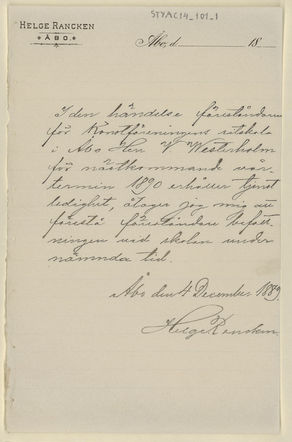 STYAC14_101_1
HELGE RANCKEN
ÅBO.
Åbo, d. 18
I den händelse föreståndaren
för Konstföreningens ritskola
i Åbo Herr V Westerholm
för nästkommande vår-
termin 1890 erhåller tjenst
ledighet, åtager jag mig att
förestå föreståndare befatt-
ningen vid skolan under
nämnda tid.
Åbo den 4 December 1889.
Helge Rancken